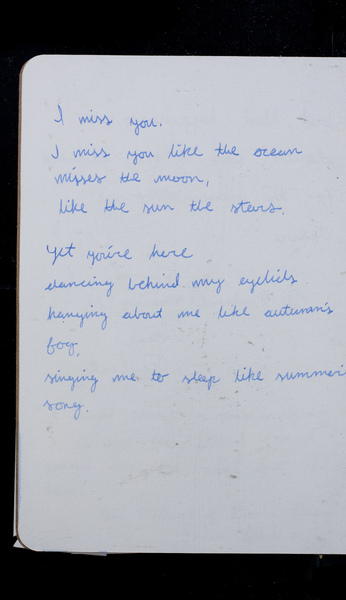 I miss you.
I miss you like the ocean
misses the moon,
like the sun the stars.
Yet you're here
dancing behind my eyelids
hanging about me like autumn's
fog,
singing me to sleep like summer
song.